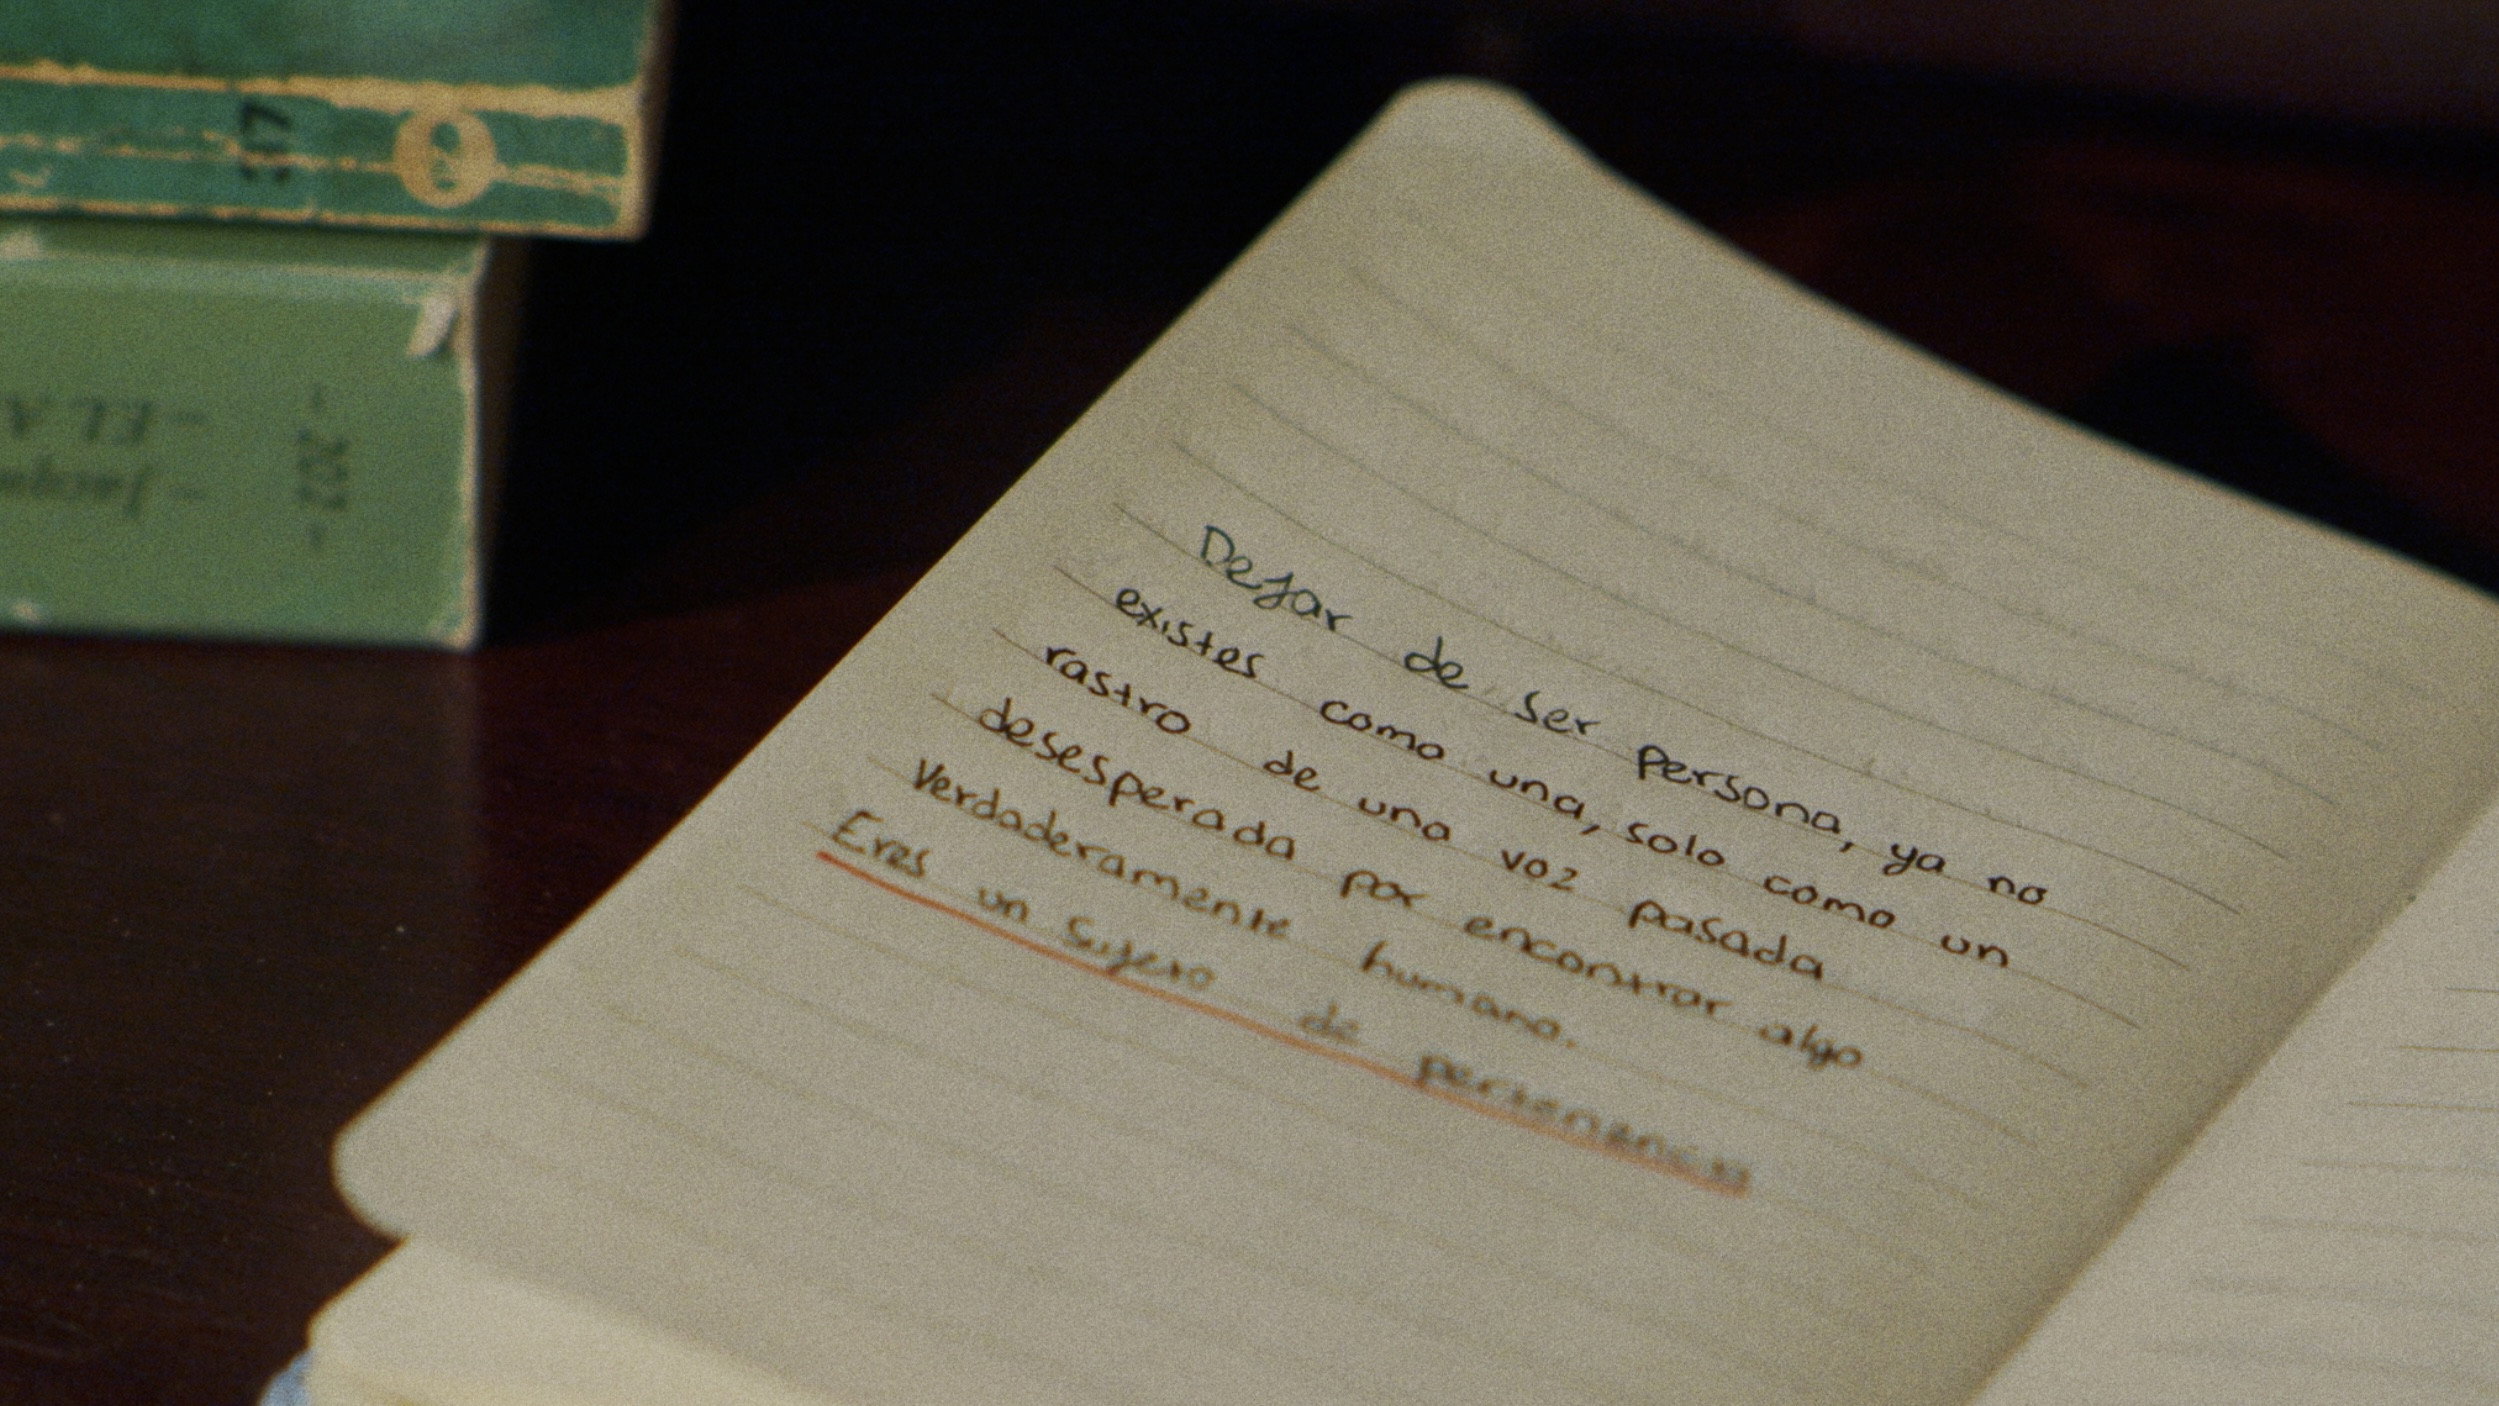 317
- EL A
- Jacque
- 202 -
Dejar de ser persona, ya no
existes como una, solo como un
rastro de una voz pasada
desesperada por encontrar algo
verdaderamente humano.
Eres un Sujeto de pertenencia